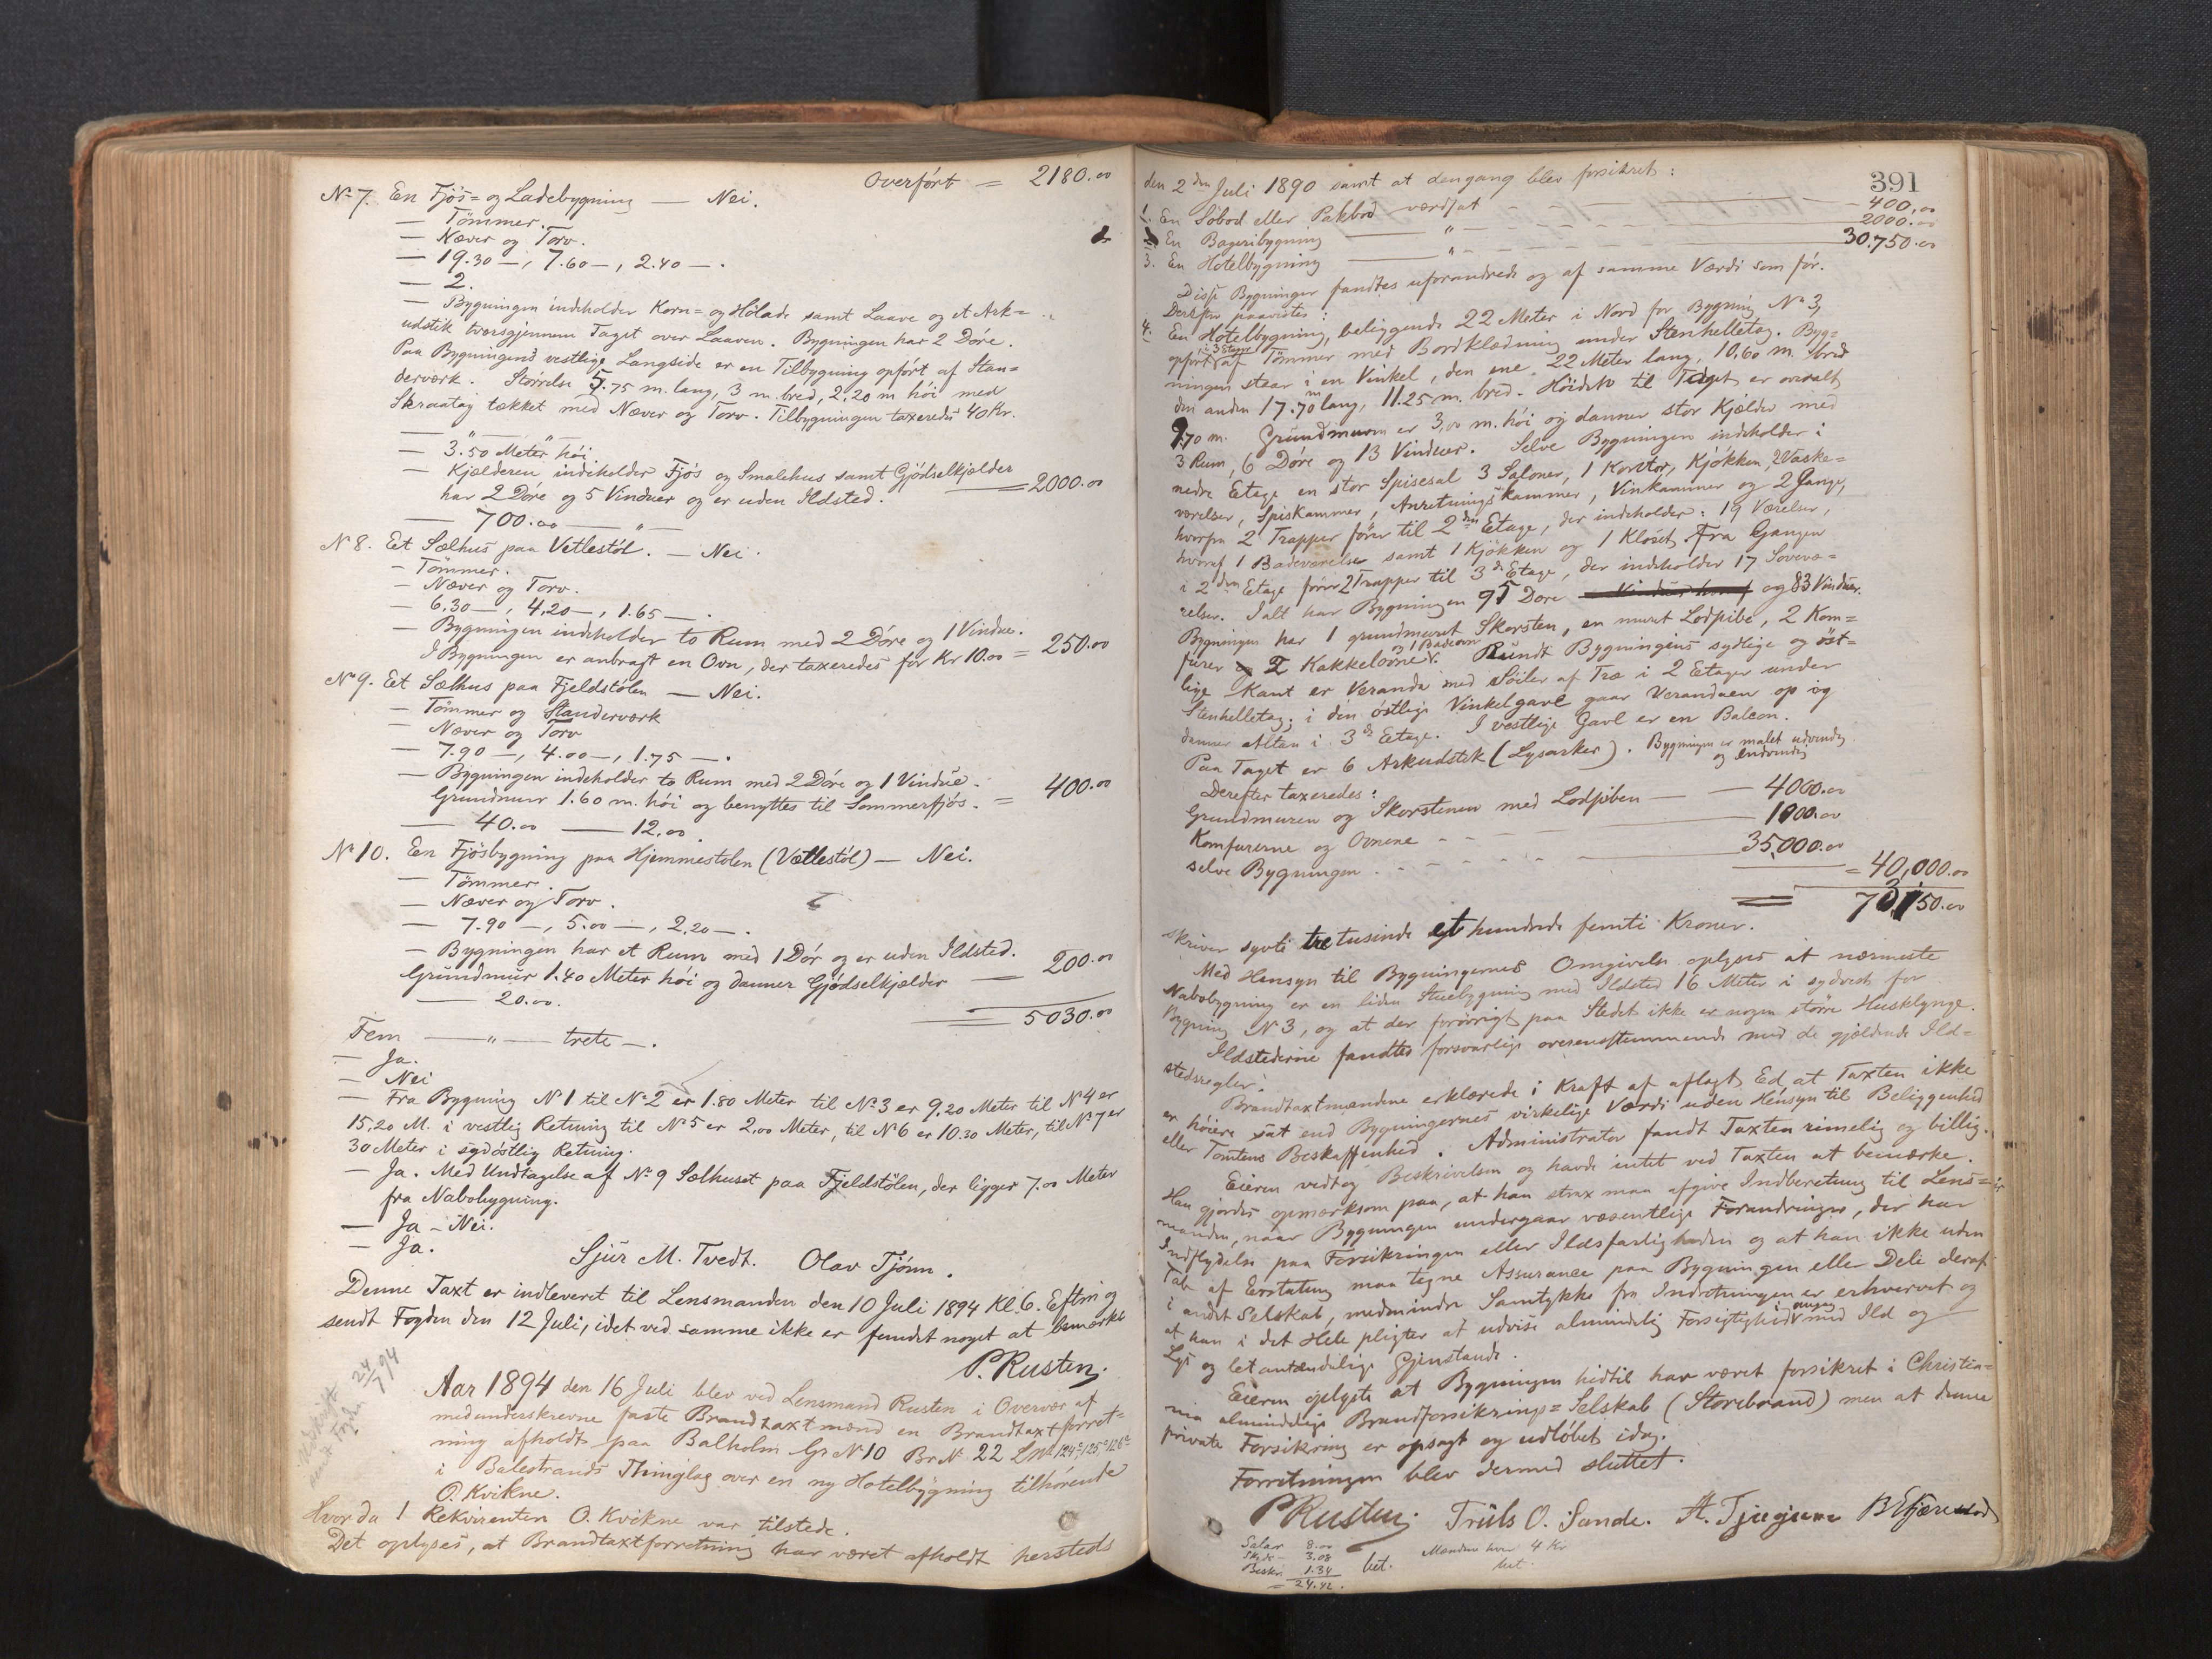 Overført = 2180.00
No 7. En Fjøs= og Ladebygning — Nei.
— Tømmer.
— Næver og Torv.
— 19.30 —, 7.60 —, 2.40 — .
— 2.
— Bygningen indeholder Korn= og Hølade samt Laave og et Ark=
udstik tversgjennem Taget over Laaven. Bygningen har 2 Døre.
Paa Bygningens vestlige Langside er en Tilbygning opført af Stan=
derværk. Størrelse 5.75 m. lang, 3 m. bred, 2,20 m høi med
Skraatag tækket med Næver og Torv. Tilbygningen taxeredes 40 Kr.
— " — " —
— 3.50 Meter høi.
— Kjælderen indeholder Fjøs og Smalehus samt Gjødselkjælder
har 2 Døre og 5 Vinduer og er uden Ildsted. = 2000.00
— 700.00 — " —
No 8. Et Sælhus paa Vetlestøl. — Nei.
— Tømmer.
— Næver og Torv.
— 6.30 —, 4.20 —, 1.65 — .
— Bygningen indeholder to Rum med 2 Døre og 1 Vindue.
I Bygningen er anbragt en Ovn, der taxeredes for Kr 10.00 = 250.00
No 9. Et Sælhus paa Fjeldstølen — Nei.
— Tømmer og Standerværk
— Næver og Torv
— 7.90 —, 4.00 —, 1.75 — .
— Bygningen indeholder to Rum med 2 Døre og 1 Vindue.
Grundmur 1.60 m. høi og benyttes til Sommerfjøs. = 400.00
— 40.00 — 12.00
No 10. En Fjøsbygning paa Hjemmestølen (Vætlestøl) — Nei.
— Tømmer.
— Næver og Torv.
— 7.90 —, 5.00 —, 2.20 — .
— Bygningen har et Rum med 1 Dør og er uden Ildsted.
Grundmur 1.40 Meter høi og danner Gjødselkjælder — 200.00
— 20.00.
5030.00
Fem — " — trete — .
— Ja.
— Nei
— Fra Bygning No 1 til No 2 er 1.80 Meter til No 3 er 9,20 Meter til No 4 er
15,20 M. i vestlig Retning til No 5 er 2,00 Meter, til No 6 er 10.30 Meter, til No 7 er
30 Meter i sydøstlig Retning.
— Ja. Med Undtagelse af No 9 Sælhuset paa Fjeldstølen, der ligger 7.00 Meter
fra Nabobygning.
— Ja — Nei.
— Ja.
Sjur M. Tvedt. Olav Tjønn.
Denne Taxt er indleveret til Lensmanden den 10 Juli 1894 Kl. 6. Eftm og
sendt Fogden den 12 Juli, idet ved samme ikke er fundet noget at bemærke
P. Rusten.
Udskrift
sendt Fogden
24/7 94
Aar 1894 den 16 Juli blev ved Lensmand Rusten i Overvær af
medunderskrevne faste Brandtaxtmænd en Brandtaxtforret=
ning afholdt paa Balholm Gr No 10 Br No 22 L No 124c 125c 126c
i Balestrands Thinglag over en ny Hotelbygning tilhørende
O. Kvikne.
Hvor da 1 Rekvirenten O. Kvikne var tilstede.
Det oplyses, at Brandtaxtforretning har været afholdt hersteds
391
den 2den Juli 1890 samt at dengang blev forsikret:
1. En Søbod eller Pakbod værdsat — 400,00
2. En Bageribygning — " — 2000.00
3. En Hotelbygning — " — 30,750.00
Disse Bygninger fandtes uforandrede og af samme Værdi som før.
Derefter paavistes:
4. En Hotelbygning, beliggende 22 Meter i Nord for Bygning No 3,
opført i 3 Etager af Tømmer med Bordklædning under Stenhelletag. Byg=
ningen staar i en Vinkel, den ene 22 Meter lang, 10,60 m. bred
den anden 17.70 m lang, 11.25 m. bred. Høiden til Taget er overalt
9.70 m. Grundmuren er 3,00 m. høi og danner stor Kjælder med
3 Rum, 6 Døre og 13 Vinduer. Selve Bygningen indeholder i
nedre Etage en stor Spisesal 3 Saloner, 1 Kontor, Kjøkken, 2 Vaske=
værelser, Spiskammer, Anretningskammer, Vinkammer og 2 Gange,
hvorfra 2 Trapper fører til 2den Etage, der indeholder: 19 Værelser,
hvoraf 1 Badeværelse samt 1 Kjøkken og 1 Kloset. Fra Gangen
i 2den Etage fører 2 Trapper til 3de Etage, der indeholder 17 Sovevæ=
relser. Ialt har Bygningen 95 Døre og 83 Vinduer.
Bygningen har 1 grundmuret Skorsten, en muret Lodpibe, 2 Kom=
furer 2 Kakkelovne og 1 Badeovn. Rundt Bygningens sydlige og øst=
lige Kant er Veranda med Søiler af Træ i 2 Etager under
Stenhelletag; i den østlige Vinkelgavl gaar Verandaen op og
danner Altan i 3de Etage. I vestlige Gavl er en Balcon.
Paa Taget er 6 Arkudstik (Lysarker). Bygningen er malet udvendig
og indvendig
Derefter taxeredes:
Grundmuren og Skorstenen med Lodpiben — 4000.00
Komfurerne og Ovnene — 1000.00
selve Bygningen — 35,000.00
= 40,000.00
73,150.00
skriver sytti tretusinde et hundrede femti Kroner.
Med Hensyn til Bygningernes Omgivelse oplyses at nærmeste
Nabobygning er en liden Stuebygning med Ildsted 16 Meter i sydvest for
Bygning No 3, og at der forøvrigt paa Stedet ikke er nogen større Husklynge.
Ildstederne fandtes forsvarlige overensstemmende med de gjældende Ild=
stedsregler.
Brandtaxtmændene erklærede i Kraft af aflagt Ed, at Taxten ikke
er høiere sat end Bygningernes virkelige Værdi uden Hensyn til Beliggenhed
eller Tomtens Beskaffenhed. Administrator fandt Taxten rimelig og billig.
Eieren vedtog Beskrivelsen og havde intet ved Taxten at bemærke.
Han gjordes opmærksom paa, at han strax maa afgive Indberetning til Lens=
manden, naar Bygningen undergaar væsentlige Forandringer, der har
Indflydelse paa Forsikringen eller Ildsfarligheden og at han ikke uden
Tab af Erstatning maa tegne Assurance paa Bygningen eller Dele deraf
i andet Selskab, medmindre Samtykke fra Indretningen er erhvervet og
at han i det Hele pligter at udvise almindelig Forsigtighed i omgang med Ild og
Lys og let antændelige Gjenstande.
Eieren oplyste at Bygningen hidtil har været forsikret i Christia=
nia almindelige Brandforsikrings=Selskab (Storebrand) men at denne
private Forsikring er opsagt og udløbet idag.
Forretningen blev dermed sluttet.
P Rusten. Truls O. Sande. A. Tjugum B Fjærestad
Salær 8.00
Skyds — 3.08
Beskr. 1.34
= 24.42.
bet.
Mændene hver 4 Kr
bet.